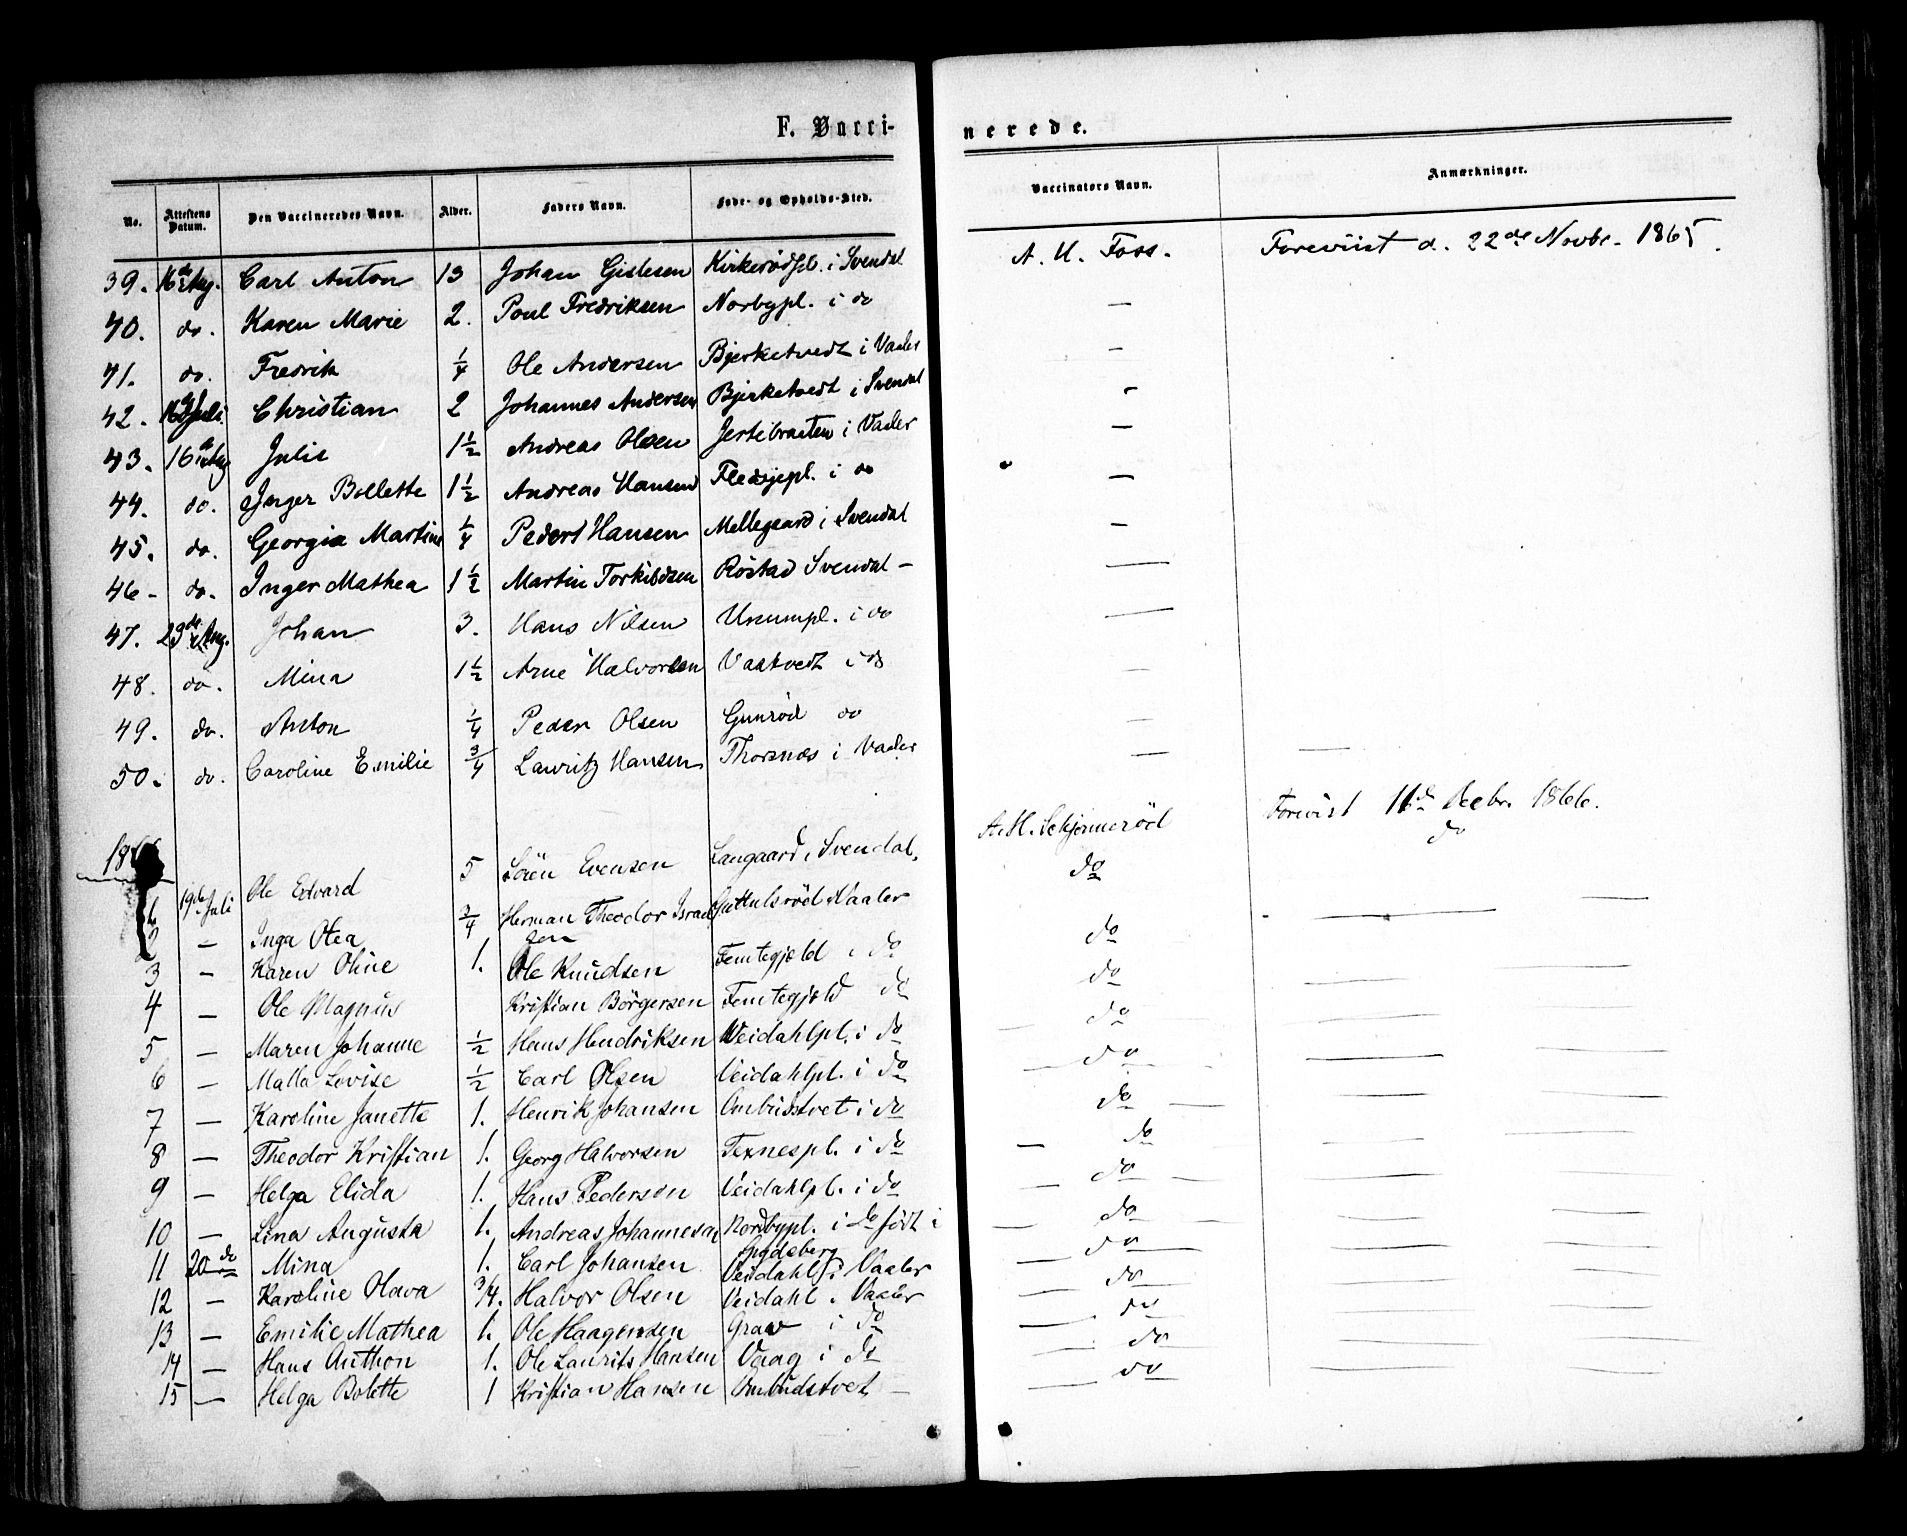 F. Vacci-
nerede.
No. Attestens Datum. Den Vaccineredes Navn. Alder. Faders Navn. Føde- og Opholds-Sted. Vaccinators Navn. Anmærkninger.
39. 16de Aug. Carl Anton 13 Johan Gislesen Kirkerødpl. i Svendal A. H. Foss. Foreviist d. 22de Novbr. 1865.
40. do. Karen Marie 2. Poul Fredriksen Norbypl. i do —
41. do. Fredrik 1/4 Ole Andersen Bjerketvedt i Vaaler —
42. Juli Christian 2 Johannes Andersen Bjerketvedt i Svendal -
43. 16de Aug Julie 1 1/2 Andreas Olsen i Vaaler —
44. do. Inger Bollette 1 1/2 Andreas Hansen i do —
45. do. Georgia Martine 1/4 Peder Hansen Mellegaard i Svendal —
46- do. Inger Mathea 1 1/2 Martin Torkildsen Røstad Svendal - —
47. 29de Aug. Johan 3. Hans Nilsen i do —
48. do. Mina 1 1/2 Arne Halvorsen Vastvedt i do —
49. do. Anton 1/4 Peder Olsen Gunrød do —
50. do. Caroline Emilie 3/4 Lauritz Hansen Thorsnæs i Vaaler — —
A. H. Schjonnerød Forevist 11de Decbr. 1866.
18
19de Juli Ole Edvard 5 Sören Evensen Langaard i Svendal. do do
2 — Inga Otea 3/4 Herman Theodor Israelsen Guttulsrød i Vaaler do — —
3 — Karen Oline 1. Ole Knudsen Femtegjeld i do do — —
4 — Ole Magnus Kristian Börgersen Femtegjeld do do — —
5 — Maren Johanne 1/2 Hans Hendriksen Weidahlpl. i do do — —
6 — Malla Lovise 1/2 Carl Olsen Veidahlpl. i do do — —
7 — Karoline Janette 1. Henrik Johansen Ombudstvet i do do — —
8 — Theodor Kristian 1. Georg Halvorsen Texnespl. i do do — —
9 — Helga Elida 1. Hans Pederson Veidahlpl. i do do — —
10 — Lina Augusta 1. Andreas Johannesen Nordbypl. i do født i Spydeberg do — —
11 20de Mina 1. Carl Johansen Veidahl i Vaaler do — —
12 — Karoline Olava 3/4. Halvor Olsen Veidahl i Vaaler do — —
13 — Emilie Mathea 1. Ole Haagensen Grav i do do — —
14 — Hans Anthon 1. Ole Laurits Hansen Vaag i do do — —
15 — Helga Bolette 1 Kristian Hansen Ombudstvet — do — —